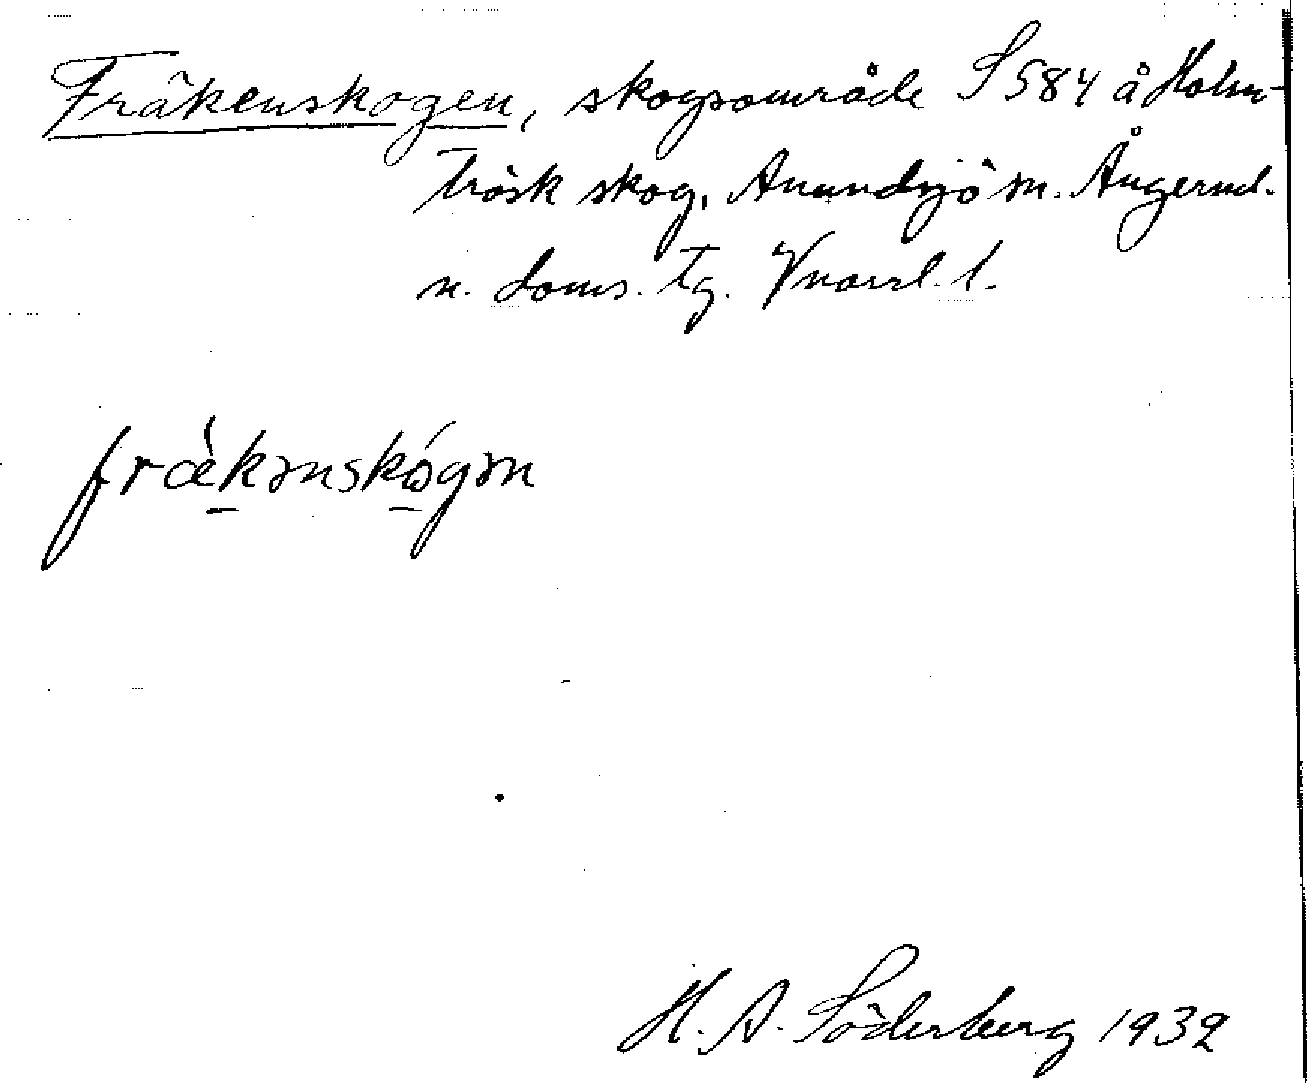 Fräkenskogen, skogsområde S 584 å Holm-
träsk skog, Anundsjö sn. Ångerml.
n. doms. tg. Vnorrl. l.
fræ̀kənskógən
H. A. Söderberg 1932